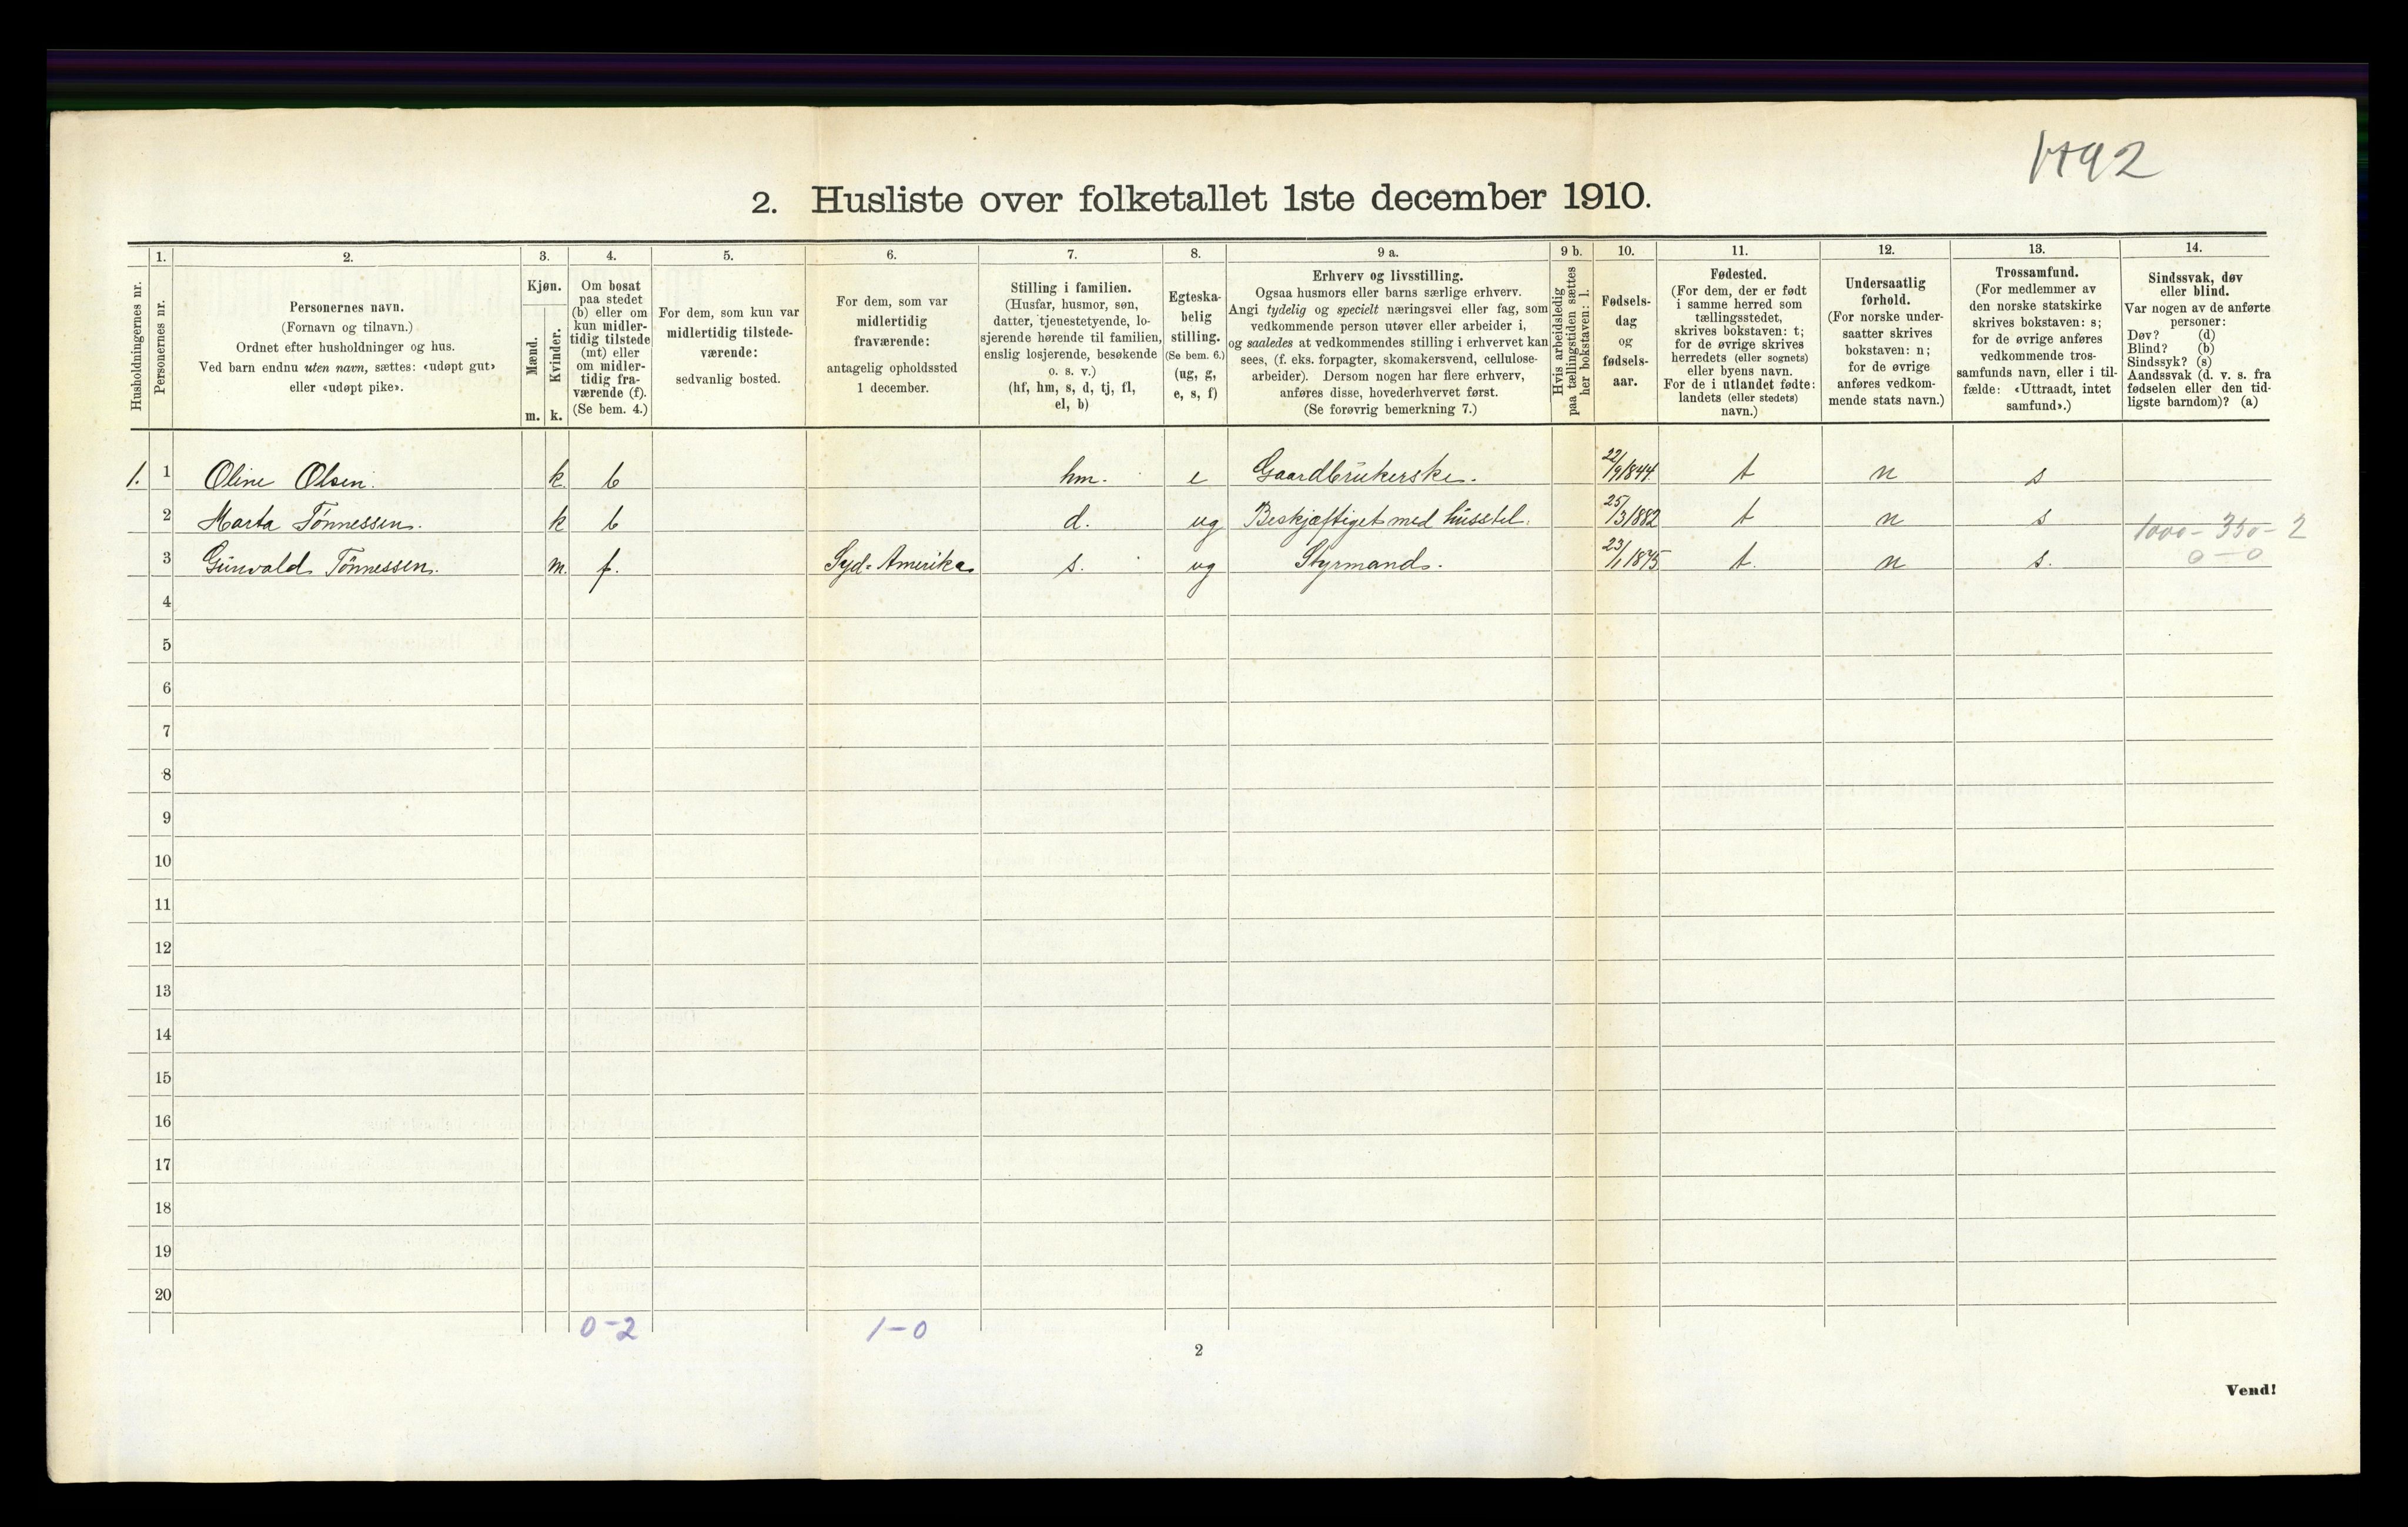 2. Husliste over folketallet 1ste december 1910.
Husholdningernes nr.
1.
Personernes nr.
2.
Personernes navn.
(Fornavn og tilnavn.)
Ordnet efter husholdninger og hus.
Ved barn endnu uten navn, sættes: «udøpt gut»
eller «udøpt pike».
3.
Kjøn.
Mænd.
Kvinder.
m. k.
4.
Om bosat
paa stedet
(b) eller om
kun midler-
tidig tilstede
(mt) eller
om midler-
tidig fra-
værende (f).
(Se bem. 4.)
5.
For dem, som kun var
midlertidig tilstede-
værende:
sedvanlig bosted.
6.
For dem, som var
midlertidig
fraværende:
antagelig opholdssted
1 december.
7.
Stilling i familien.
(Husfar, husmor, søn,
datter, tjenestetyende, lo-
sjerende hørende til familien,
enslig losjerende, besøkende
o. s. v.)
(hf, hm, s, d, tj, fl,
el, b)
8.
Egteska-
belig
stilling.
(Se bem. 6.)
(ug, g,
e, s, f)
9 a.
Erhverv og livsstilling.
Ogsaa husmors eller barns særlige erhverv.
Angi tydelig og specielt næringsvei eller fag, som
vedkommende person utøver eller arbeider i,
og saaledes at vedkommendes stilling i erhvervet kan
sees, (f. eks. forpagter, skomakersvend, cellulose-
arbeider). Dersom nogen har flere erhverv,
anføres disse, hovederhvervet først.
(Se forøvrig bemerkning 7.)
9 b.
Hvis arbeidsledig
paa tællingstiden sættes
her bokstaven: l.
10.
Fødsels-
dag
og
fødsels-
aar.
11.
Fødested.
(For dem, der er født
i samme herred som
tællingsstedet,
skrives bokstaven: t;
for de øvrige skrives
herredets (eller sognets)
eller byens navn.
For de i utlandet fødte:
landets (eller stedets)
navn.)
12.
Undersaatlig
forhold.
(For norske under-
saatter skrives
bokstaven: n;
for de øvrige
anføres vedkom-
mende stats navn.)
13.
Trossamfund.
(For medlemmer av
den norske statskirke
skrives bokstaven: s;
for de øvrige anføres
vedkommende tros-
samfunds navn, eller i til-
fælde: «Uttraadt, intet
samfund».)
14.
Sindssvak, døv
eller blind.
Var nogen av de anførte
personer:
Døv? (d)
Blind? (b)
Sindssyk? (s)
Aandssvak (d. v. s. fra
fødselen eller den tid-
ligste barndom)? (a)
1. 1 Oline Olsen. k b hm. e Gaardbrukerske. 22/9 1844 t n s
2 Marta Tönnessen. k b d. ug Beskjæftiget med husstel. 25/3 1882 t n s
1000 - 350 - 2
3 Gunvald Tönnessen. m. f. Syd-Amerika s. ug Styrmand. 23/1 1875 t. n s.
0 - 0
4
5
6
7
8
9
10
11
12
13
14
15
16
17
18
19
20
0-2 1-0
2
Vend!